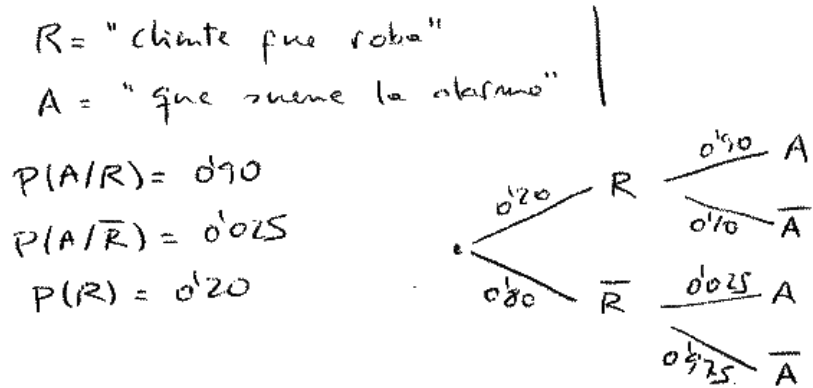 R = "cliente que roba"
A = "que suene la alarma"
P(A/R) = 0'90
P(A/R̅) = 0'025
P(R) = 0'20
0'20 R 0'90 A
0'10 A̅
0'80 R̅ 0'025 A
0'975 A̅